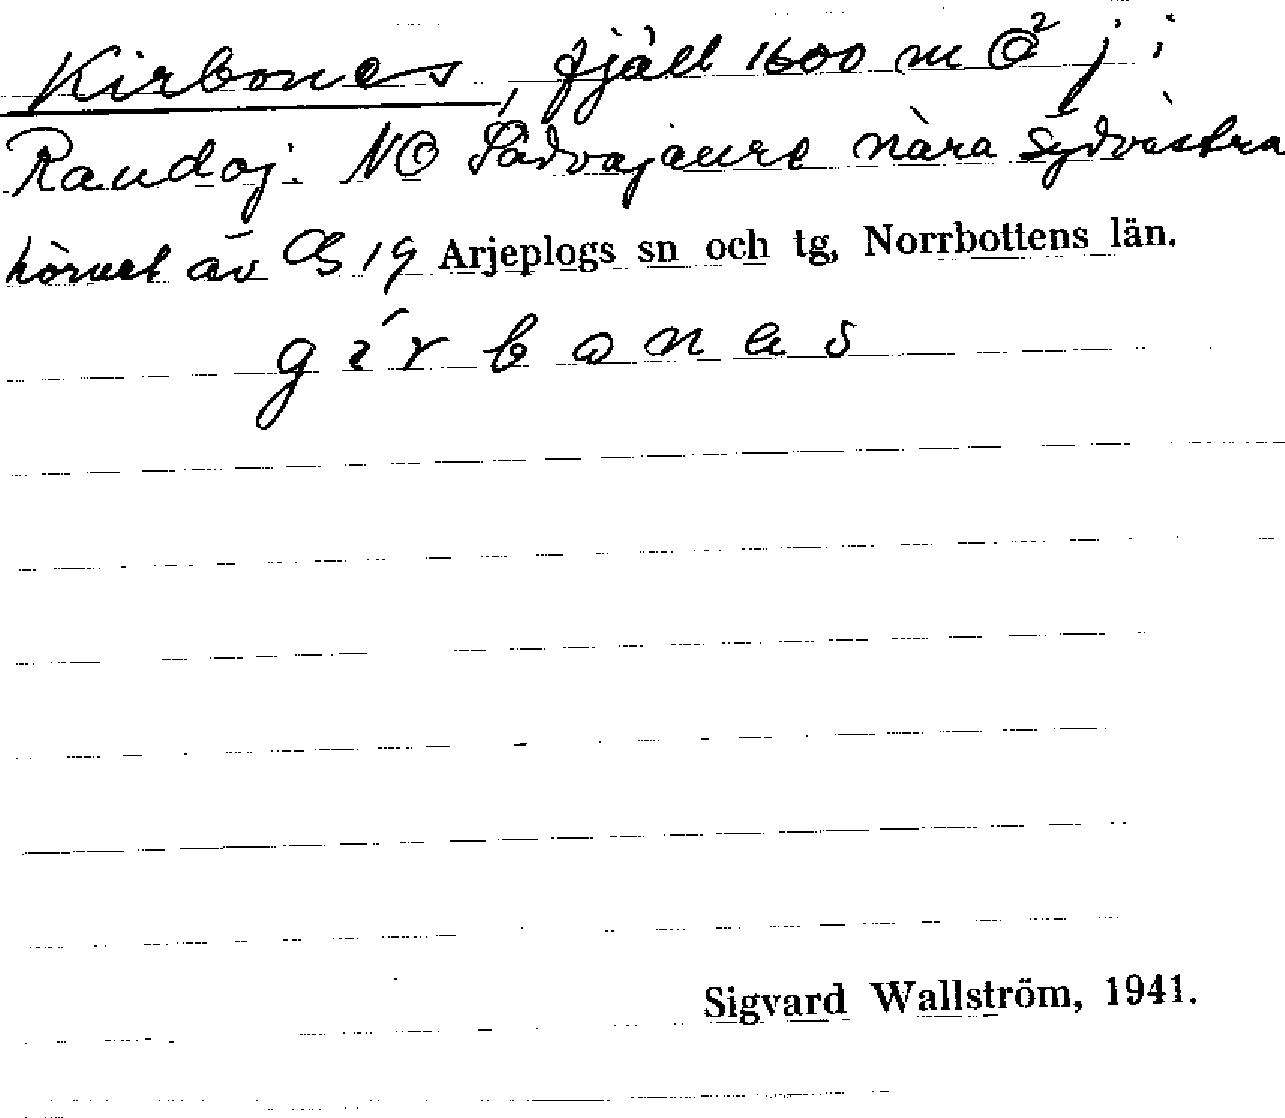 Kirbones, fjäll 1600 m Ö² j i
Randaj. NO Sädvajaure nära sydvästra
hörnet av CS 19 Arjeplogs sn och tg, Norrbottens län.
gírbonas
Sigvard Wallström, 1941.